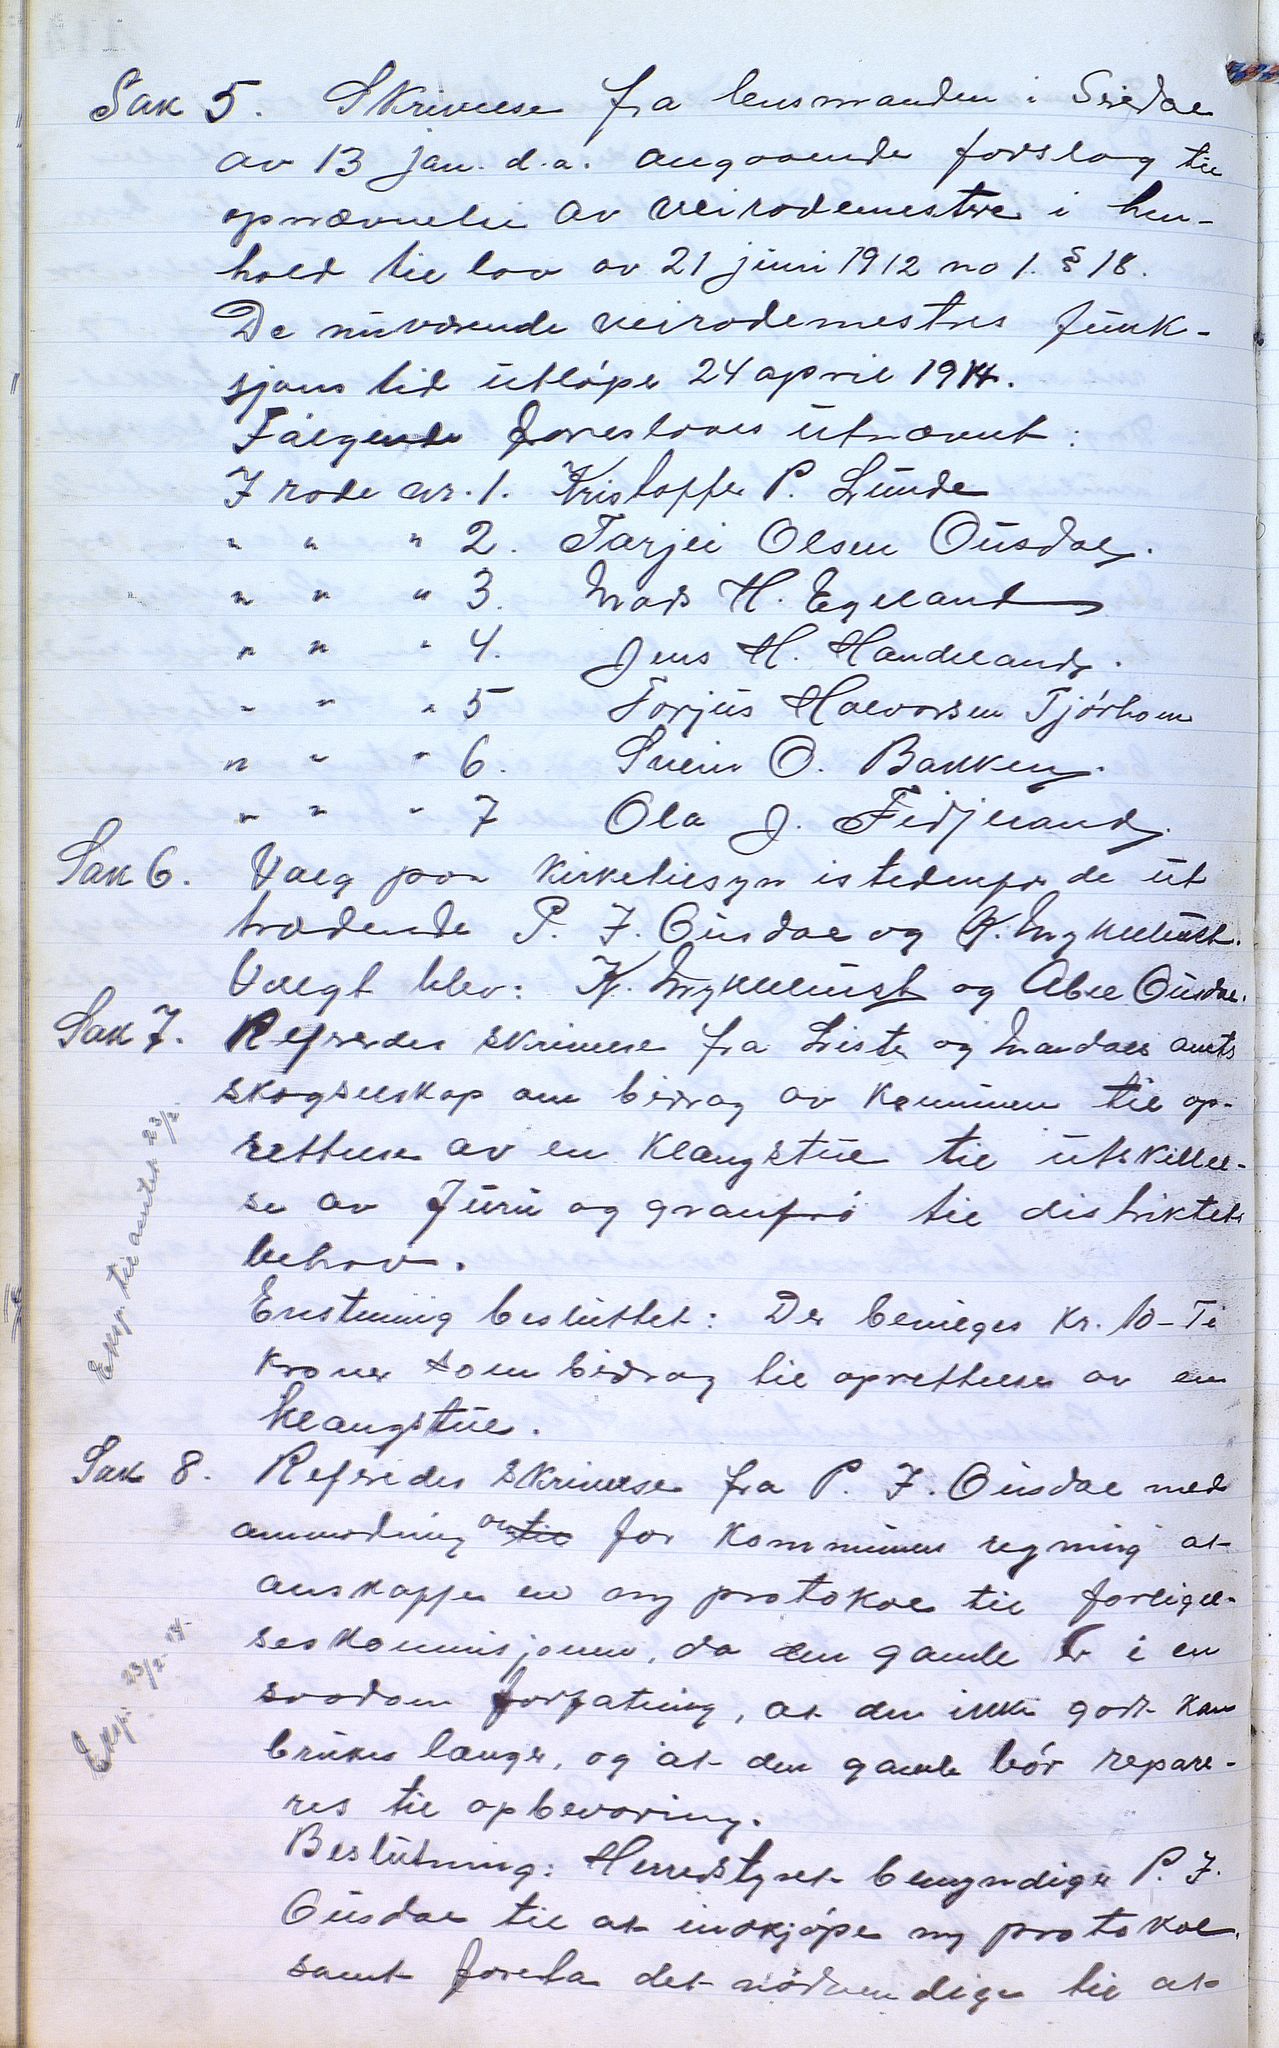 Sak 5. Skrivelse fra lensmanden i Siredal
av 13 jan. d.a. angaaende forslag til
opnævnelse av veirodemestre i hen-
hold til lov av 21 juni 1912 no 1. § 18.
De nuværende veirodemestres funk-
sjons tid utløper 24 april 1914.
Følgende foreslaaes utnævnt:
I rode nr. 1. Kristoffer P. Lunde
" " " 2. Tarjei Olsen Ousdal.
" " " 3. Mads H. Egeland
" " " 4. Jens H. Handeland.
" " " 5 Torjus Halvorsen Tjórhom
" " " 6. Svein O. Bakken.
" " " 7 Ola J. Fidjeland.
Sak 6. Valg paa kirketilsyn istedenfor de ut
trædende P. J. Ousdal og K. Myklebust.
Valgt blev: K. Myklebust og Abel Ousdal.
Sak 7. Refereredes skrivelse fra Lister og Mandals amts
skogselskap om bidrag av kommunen til op-
rettelse av en klængstue til utskillel-
se av furu og granfrö til distriktets
behov.
Eksp. til amtet 23/2
Enstemmig besluttet: Der bevilges kr. 10 - Ti
kroner som bidrag til oprettelse av en
klængstue.
Sak 8. Refereredes skrivelse fra P. J. Ousdal med
anmodning om til for kommunens regning at
anskaffe en ny protokol til forligel-
seskommisjonen, da den gamle er i en
saadan forfatning, at den ikke godt kan
brukes længer, og at den gamle bór repare-
res til opbevaring.
Eksp. 23/2-14-
Beslutning: Herredstyret bemyndiger P. J.
Ousdal til at indkjópe ny protokol
samt foreta det nódvendige til at